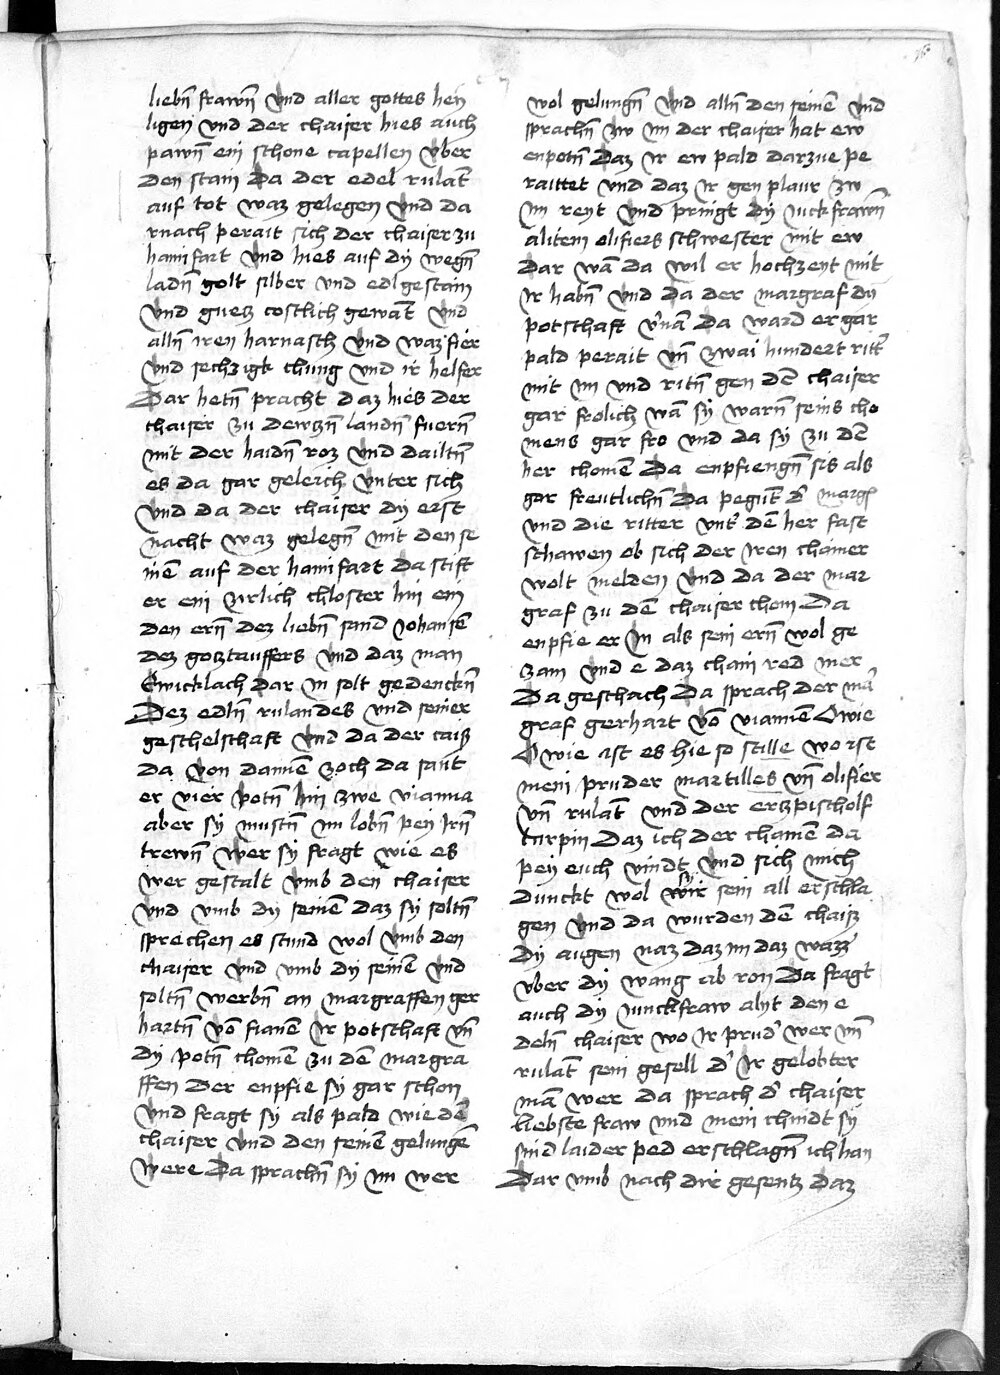 liebn̄ frawn̄ vnd aller gottes hey
ligen vnd der chaiser hies auch
pawn̄ ein schone capellen vber
den stain Da der edel rulāt
auf tot waz gelegen vnd da
rnach perait sich der chaiser zu
haimfart vnd hies auf dy wegn̄
ladn̄ golt silber vnd edlgestain
vnd guetz costlich gewāt vnd
alln̄ iren harnasch vnd waz fier
vnd sechzigk chung vnd ir helfer
Dar hetn̄ pracht daz hies der
chaiser zu dewtzn̄ landn̄ fuern̄
mit der haidn̄ roz vnd dailtn̄
es da gar geleich vnter sich
vnd da der chaiser dy erst
nacht waz gelegn̄ mit den se
inē auf der haimfart da stift
er ein zirlich chloster hin ein
den ern̄ dez liebn̄ sand Johansē
dez gotztauffers vnd daz man
Ewicklach dar in solt gedenckn̄
Dez edln̄ rulandes vnd seiner
geschelschaft vnd da der caiß
da von dannē zoch da sant
er vier potn̄ hin zwe vianna
aber sy mustn̄ im lobn̄ pey irn̄
trewn̄ wer sy fragt wie es
wer gestalt vmb den chaiser
vnd vmb dy seinē daz sy soltn̄
sprechen es stund wol vmb den
chaiser vnd vmb dy seinē vnd
soltn̄ werbn̄ an margraffen ger
hartn̄ vō fianē ir potschaft vn̄
dy potn̄ chomē zu dē margra
ffen der enpfie sy gar schon
vnd fragt sy als pald wie dē
chaiser vnd den seinē gelungē
were Da sprachn̄ sy im wer
wol gelungn̄ vnd alln̄ den seinē vnd
sprachn̄ zw im der chaiser hat ew
enpotn̄ Daz ir ew pald darzue pe
raittet vnd daz ir gen plaur zw
im reyt vnd pringt dy iuckfrawn̄
alitem olifiers schwester mit ew
dar wā da wil er hochzeyt mit
ir habn̄ vnd da der margraf dy
potschaft v̓nā da ward er gar
pald perait vn̄ zwai hundert ritt̓
mit im vnd ritn̄ gen dē chaiser
gar frolich wā sy warn̄ seins cho
mens gar fro vnd da sy zu dē
her chomē Da enpfiengn̄ sis als
gar freutlichn̄ da pegūt d̓ marg̓
vnd die ritter vnt̓ dē her fast
schawen ob sich der iren chainer
wolt melden vnd da der mar
graf zu dē chaiser chom Da
enpfie er in als sein ern̄ wol ge
zam vnd e daz chain red mer
Da geschach Da sprach der mā
graf gerhart vō viannē O wie
O wie ist es hie so stille wo ist
mein pruder martilles vn̄ olifier
vn̄ rulāt vnd der ertzpischolf
turpin Daz ich der chainē da
pey euch vindt vnd sich mich
dunckt wol sy sein all erschla
gen vnd da wurden dē chaiß
dy augen naz daz im daz wazz̓
vber dy wang ab ron Da fragt
auch dy iunckfraw alyt den e
deln̄ chaiser wo ir prud̓ wer vn̄
rulāt sein gesell d̓ ir gelobter
mā wer da sprach d̓ chaiser
liebste fraw vnd mein chindt sy
sind laider ped erschlagn̄ ich han
Dar vmb nach dir gesentz daz